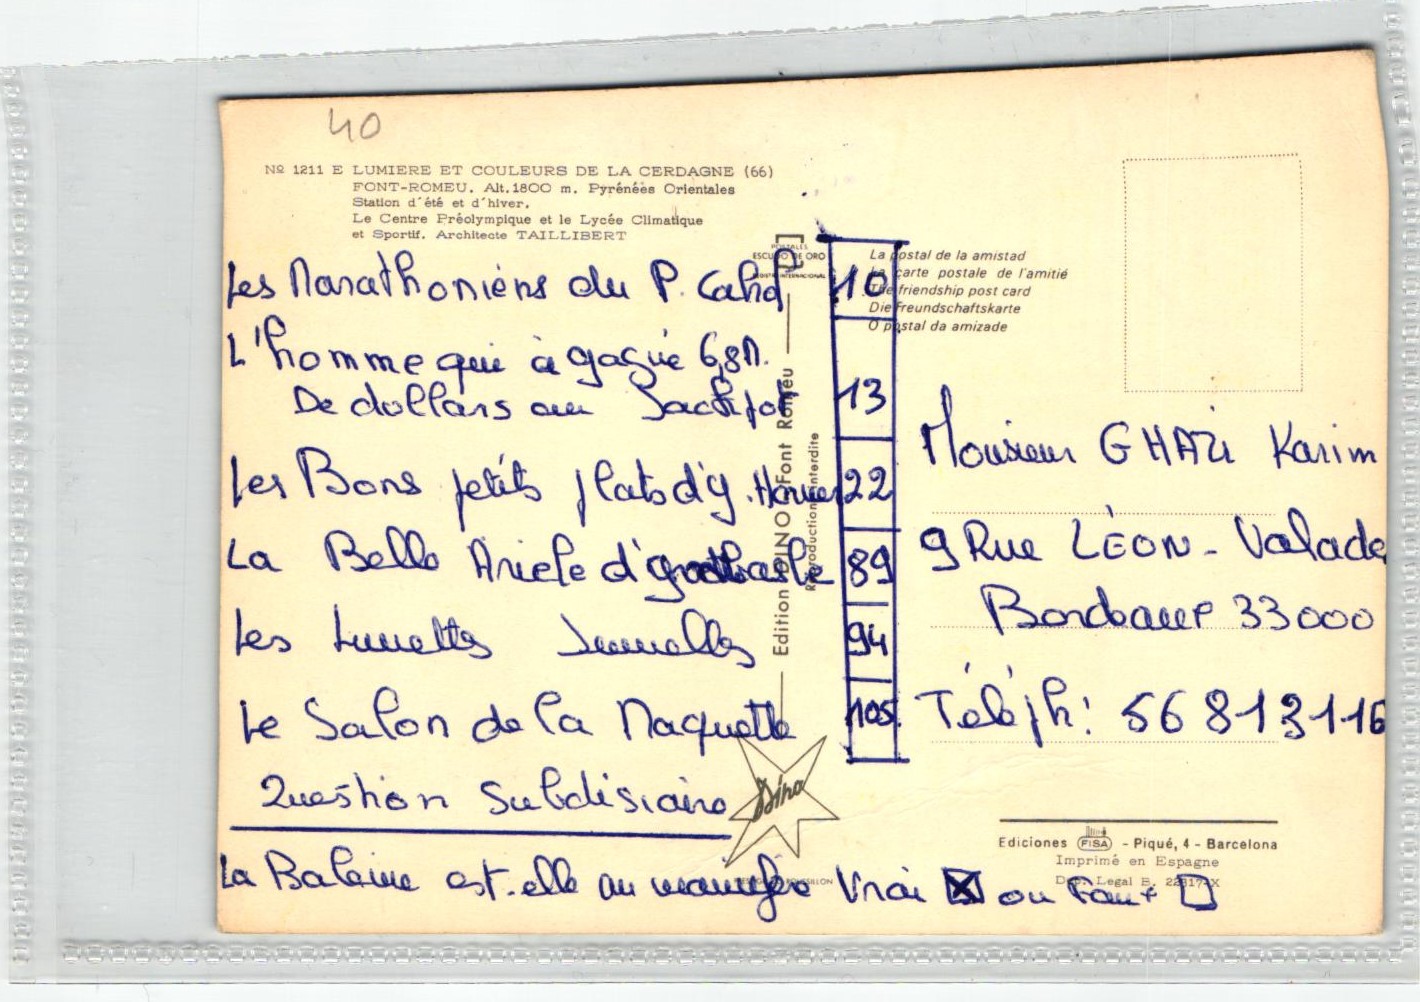 40
Nº 1211 E LUMIERE ET COULEURS DE LA CERDAGNE (66)
FONT-ROMEU. Alt. 1800 m. Pyrénées Orientales
Station d'été et d'hiver.
Le Centre Préolympique et le Lycée Climatique
et Sportif. Architecte TAILLIBERT
POSTALES
ESCUDO DE ORO
REGISTRO INTERNACIONAL
La postal de la amistad
La carte postale de l'amitié
The friendship post card
Die Freundschaftskarte
O postal da amizade
Les Marathoniens du P. 10
L'homme qui à gagné 6,8M.
De dollars au Jackpot 13
Les Bons petits plats d'y. 22
La Belle Ariele 89
Les Lunettes Jumelles 94
Le Salon de la Maquette 105
Question Subdisiaire
La Baleine est-elle un mamifère Vrai ☒ ou Faux ☐
Edition DINO Font Romeu
Reproduction interdite
Dino
Monsieur GHAZI Karim
9 Rue LÉON - Valade
Bordeaux 33000
Téléph: 56 81 31 16
Ediciones FISA - Piqué, 4 - Barcelona
Imprimé en Espagne
Dep. Legal B.